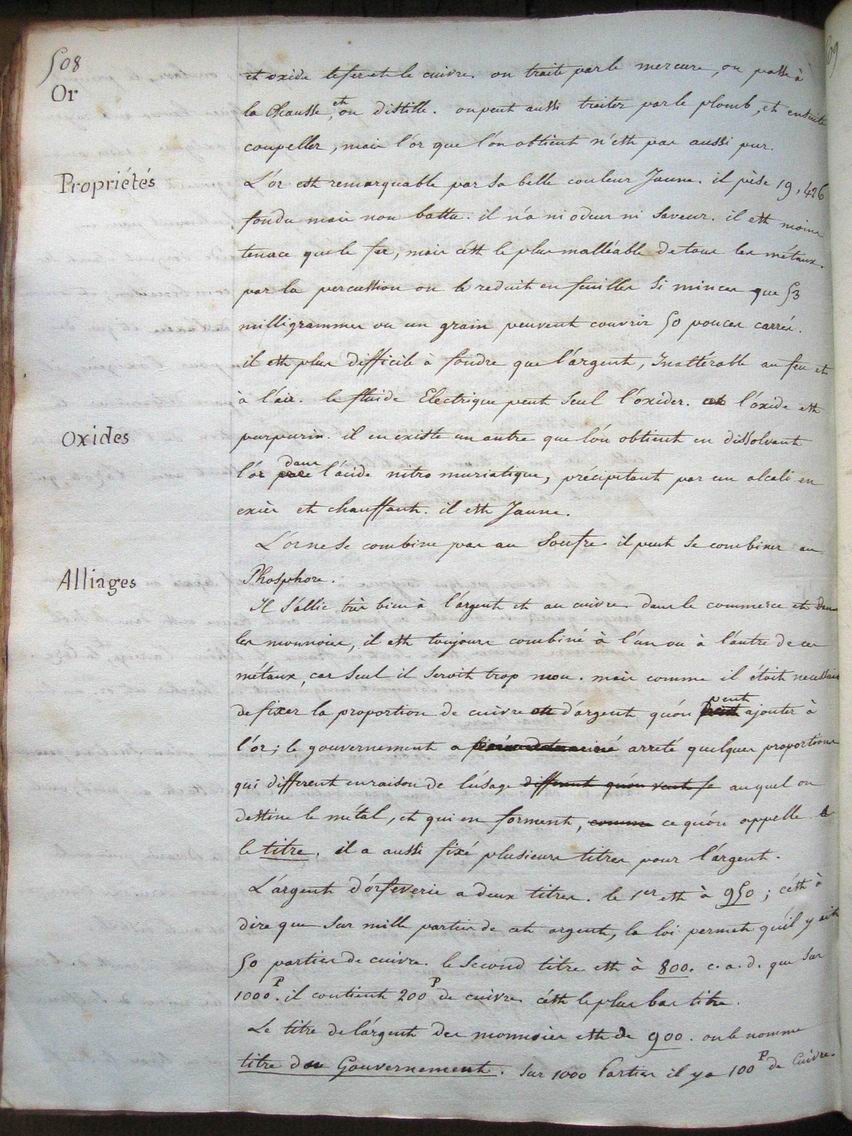 508
Or
et oxide le fer et le cuivre. on traite par le mercure, on passe à
la Chausse, et on distille. on peut aussi traiter par le plomb, et ensuite
coupeller, mais l'or que l'on obtient n'est pas aussi pur.
Propriétés
L'or est remarquable par sa belle couleur Jaune. il pèse 19,426
fondu mais non battu. il n'a ni odeur ni saveur. il est moins
tenace que le fer, mais c'est le plus malléable de tous les métaux.
par la percussion on le reduit en feuilles si minces que 53
milligrammes ou un grain peuvent couvrir 50 pouces carrés.
il est plus difficile à fondre que l'argent, Inattérable au feu et
à l'air. le fluide Electrique peut seul l'oxider. et l'oxide est
Oxides
purpurin. il en existe un autre que l'on obtient en dissolvant
l'or dans l'acide nitro muriatique, précipitant par un alcali en
excès et chauffant. il est Jaune.
L'or ne se combine pas au Soufre. il peut se combiner au
Alliages
Phosphore.
Il s'allie très bien à l'argent et au cuivre. dans le commerce et dans
les monnoies, il est toujours combiné à l'un ou à l'autre de ces
métaux, car seul il seroit trop mou. mais comme il étoit necessaire
de fixer la proportion de cuivre ou d'argent qu'on peut ajouter à
l'or; le gouvernement a arreté quelques proportions
qui different en raison de l'usage different qu'on veut fe auquel on
destine le métal, et qui en forment, comme ce qu'on appelle
le titre. il a aussi fixé plusieurs titres pour l'argent.
L'argent d'orfeverie a deux titres. le 1er est à 950; c'est à
dire que sur mille parties de cet argent, la loi permet qu'il y ait
50 parties de cuivre. le second titre est à 800. c.a.d. que sur
1000 P. il contient 200 P de cuivre. c'est le plus bas titre.
Le titre de l'argent des monnoies est de 900. on le nomme
titre du Gouvernement. Sur 1000 Parties il y a 100 P de Cuivre.